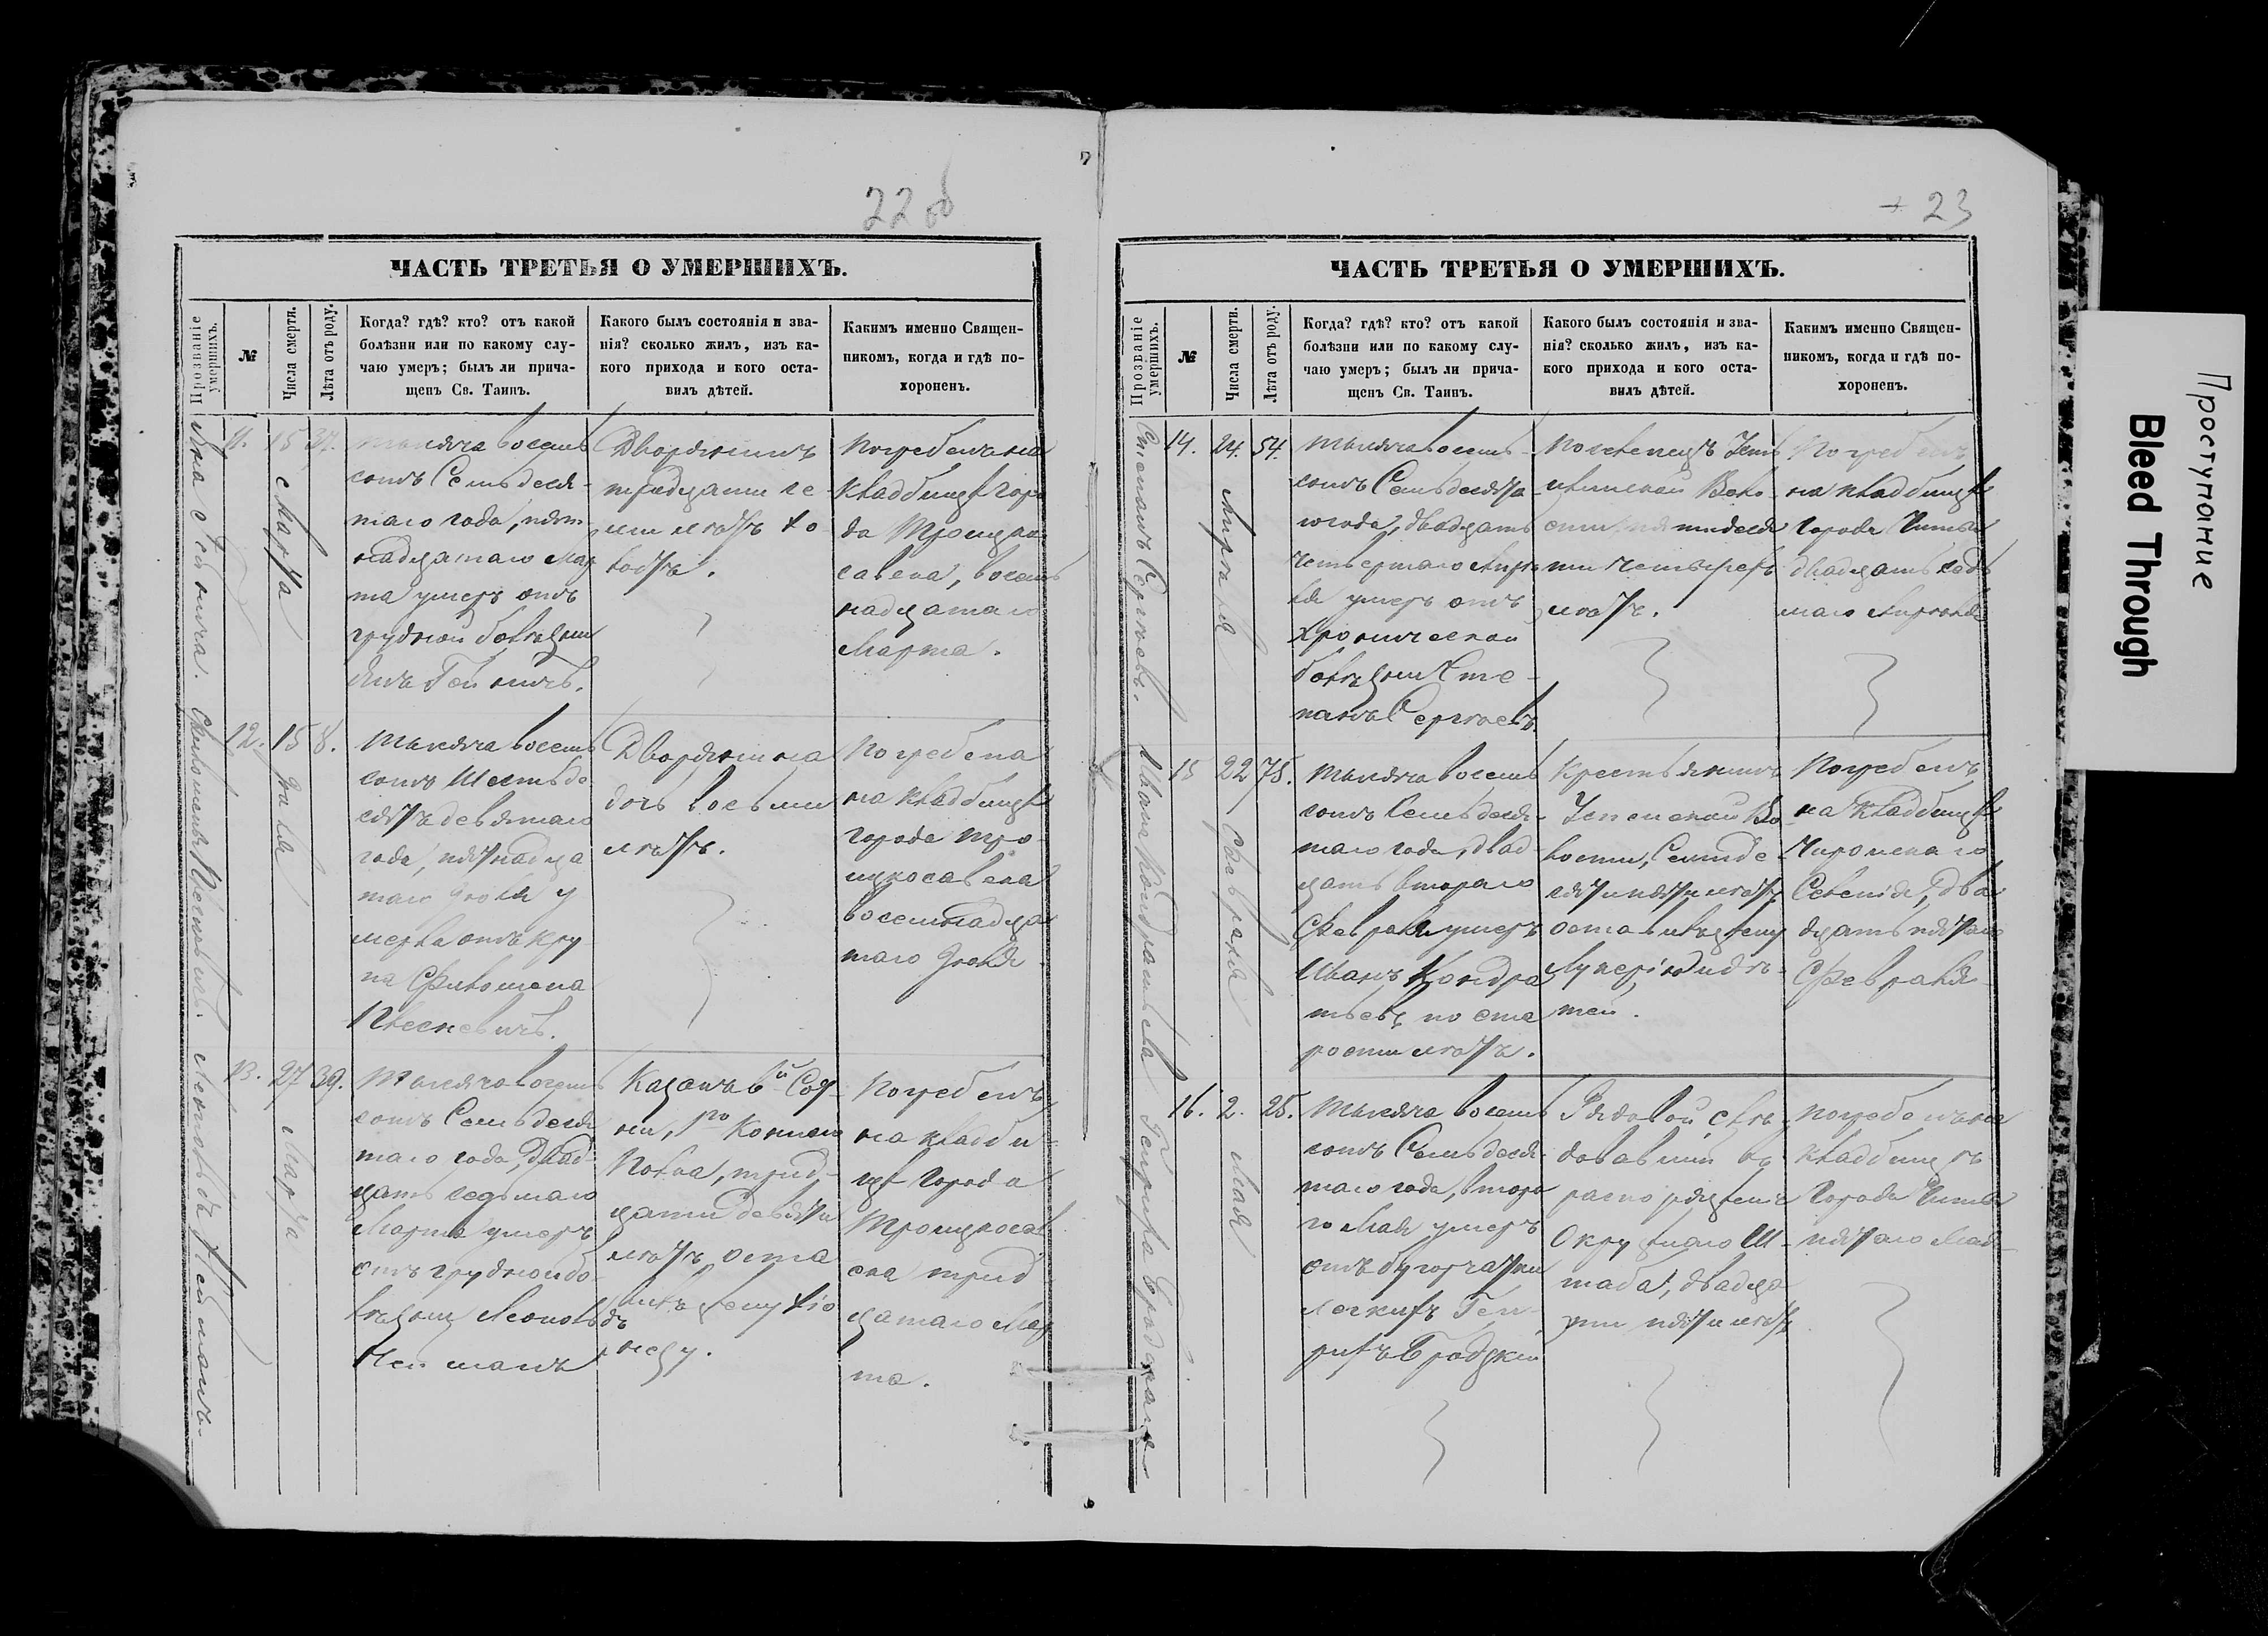 22 об
ЧАСТЬ ТРЕТЬЯ О УМЕРШИХЪ.
Прозваніе умершихъ.
№
Числа смерти.
Лѣта отъ роду.
Когда? гдѣ? кто? отъ какой
болѣзни или по какому слу-
чаю умеръ; былъ ли прича-
щенъ Св. Таинъ.
Какого былъ состоянія и зва-
нія? сколько жилъ, изъ ка-
кого прихода и кого оста-
вилъ дѣтей.
Какимъ именно Священ-
никомъ, когда и гдѣ по-
хороненъ.
11.
15 Марта
37.
Тысяча восемь
сотъ Семьдеся-
таго года, пят
надцатаго Мар
та умеръ отъ
грудной болѣзни
Янъ
Дворянинъ
тридцати се
ми лѣтъ хо
лостъ.
Погребенъ на
кладбищѣ горо
да Троицко
савска, восемь
надцатаго
Марта.
12.
15 Іюля
8.
Тысяча восемь
сотъ Шестьде
сятъ девятаго
года, пятнадца
таго Іюля у
мерла отъ кру
па Филомена
Дворянина
дочь восьми
лѣтъ.
Погребена
на кладбищѣ
города Тро-
ицкосавска
восемнадца
таго Іюля
13.
27 Марта
39.
Тысяча восемь
сотъ Семьдеся
таго года, двад-
цать седьмаго
Марта умеръ
отъ грудной бо-
лѣзни
Нейманъ
Казакъ
Погребенъ
на кладби-
щѣ Города
Троицкосав
ска трид
цатаго Мар
та.
23
ЧАСТЬ ТРЕТЬЯ О УМЕРШИХЪ.
Прозваніе умершихъ.
№
Числа смерти.
Лѣта отъ роду.
Когда? гдѣ? кто? отъ какой
болѣзни или по какому слу-
чаю умеръ; былъ ли прича-
щенъ Св. Таинъ.
Какого былъ состоянія и зва-
нія? сколько жилъ, изъ ка-
кого прихода и кого оста-
вилъ дѣтей.
Какимъ именно Священ-
никомъ, когда и гдѣ по-
хороненъ.
Степанъ Сергѣевъ.
14.
24. Апрѣля
54.
Тысяча восемь-
сотъ Семьдесята
го года, двадцать
четвертаго Апрѣ
ля умеръ отъ
хронической
болѣзни Сте-
панъ Сергѣевъ
Поселенецъ
пятидеся
ти четырехъ
лѣтъ.
Погребенъ
на кладбищѣ
Города Читы
двадцать седь
маго Апрѣля
15
22 Февраля
75.
Тысяча восемь
сотъ Семьдеся-
таго года, двад-
цать втораго
Февраля умеръ
Иванъ Кондра
тьевъ по ста
рости лѣтъ.
Крестьянинъ
Во
лости, Семиде-
сяти пяти лѣтъ
оставившему
дѣ-
тей.
Погребенъ
на кладбищѣ
Селенія, два
дцать пятаго
Февраля
16.
2. Мая
25.
Тысяча восемь
сотъ Семьдеся-
таго года, второ
го Мая умеръ
отъ бугорчатки
легкихъ Ген-
рихъ Бродскій
Рядовой, слѣ-
довавшій въ
распоряженіе
Окружнаго Ш-
таба, двадца
ти пяти лѣтъ
Погребенъ на
кладбищѣ
Города Читы
пятаго Мая
Проступание
Bleed Through